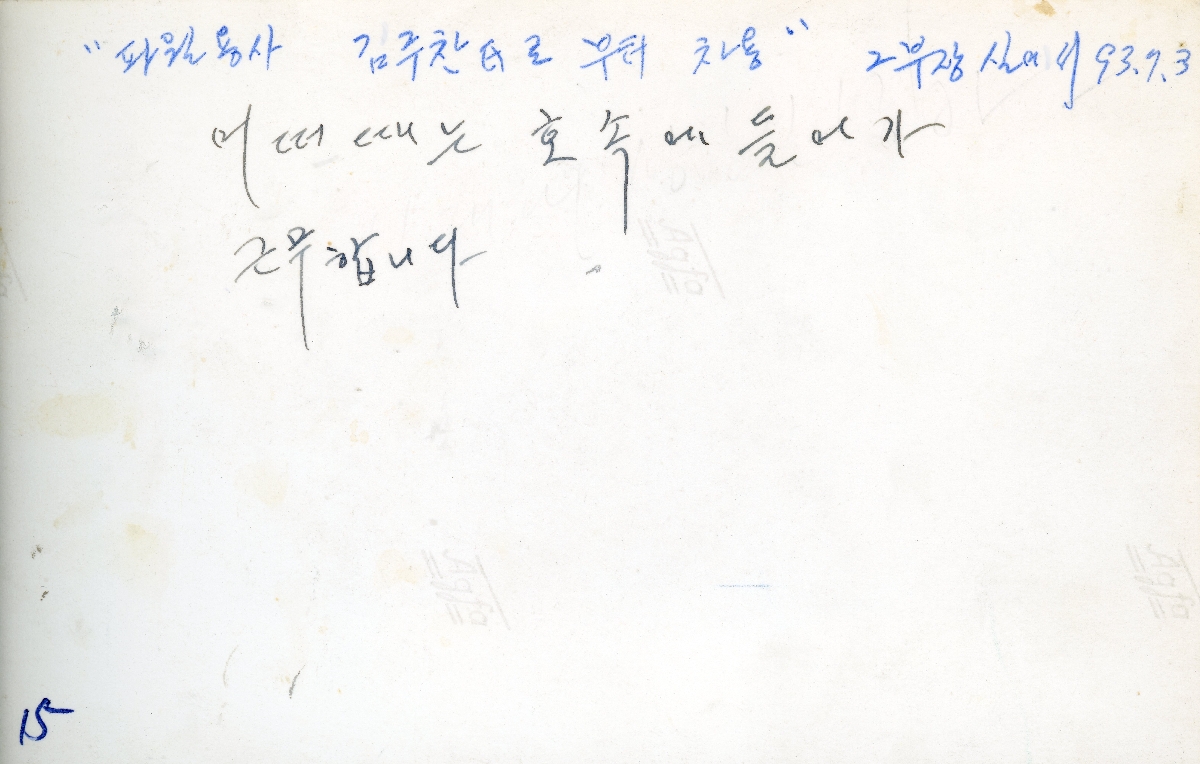 "파월용사 김주찬 氏로 부터 차용" 2부장실에서 93.7.3
어떠 때는 호속에 들어가
근무합니다
15